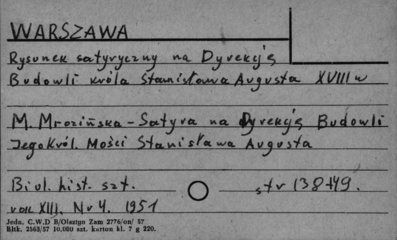 WARSZAWA
Rysunek satyryczny na Dyrekcję
Budowli króla Stanisława Augusta XVIII w
M. Mrozińska - Satyra na Dyrekcję Budowli
Jego Król. Mości Stanisława Augusta
Biul. hist. szt. str 138-49.
rok XIII. Nr 4. 1951
Jedn. C.W.D B/Olsztyn Zam 2776/on/ 57
Bltk. 2563/57 10.000 szt. karton kl. 7 g 220.